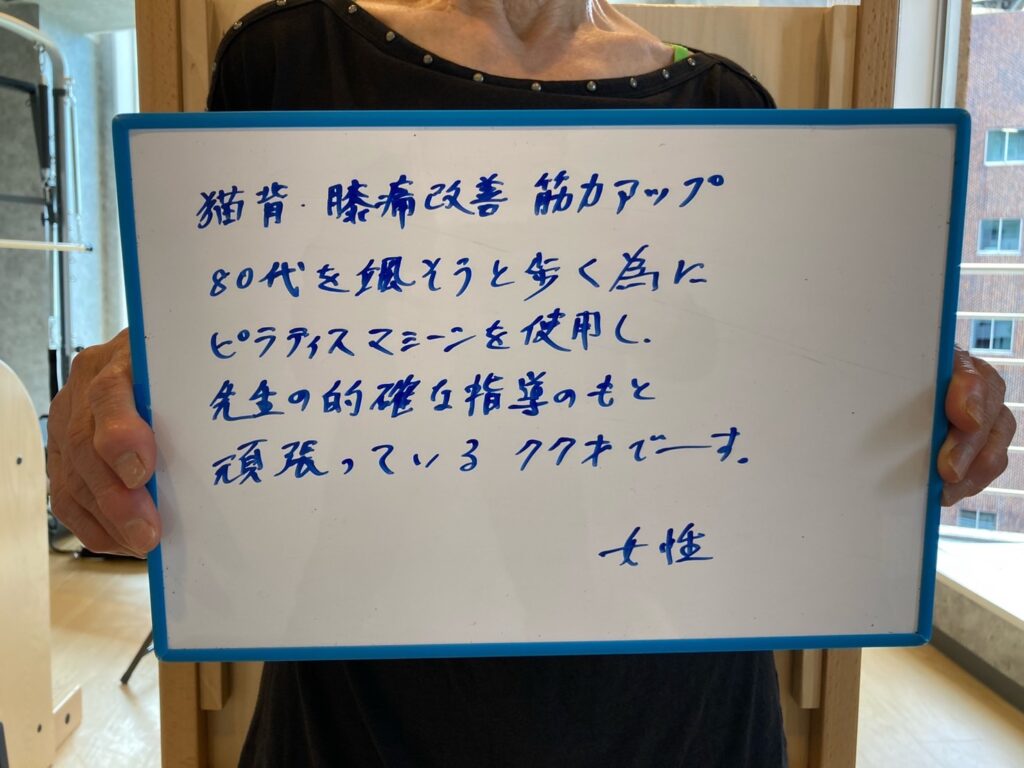 猫背・膝痛改善 筋力アップ
80代を颯そうと歩く為に
ピラティスマシーンを使用し、
先生の的確な指導のもと
頑張っている 77才でーす。
女性